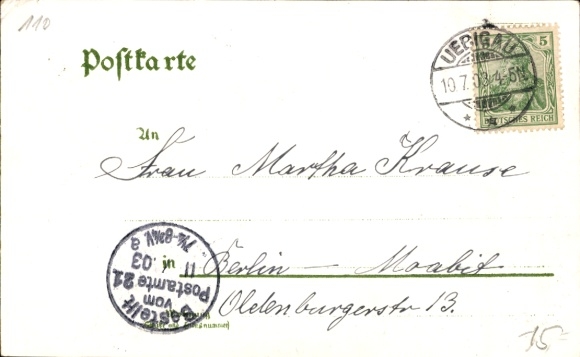 110
Postkarte
UEBIGAU
10.7.03.4-5N
5
DEUTSCHES REICH
An
Frau Martha Krause
in Berlin - Moabit
Oldenburgerstr 13.
Bestellt
vom
Postamte 21
11 03
7¼-8¼V
a
15-